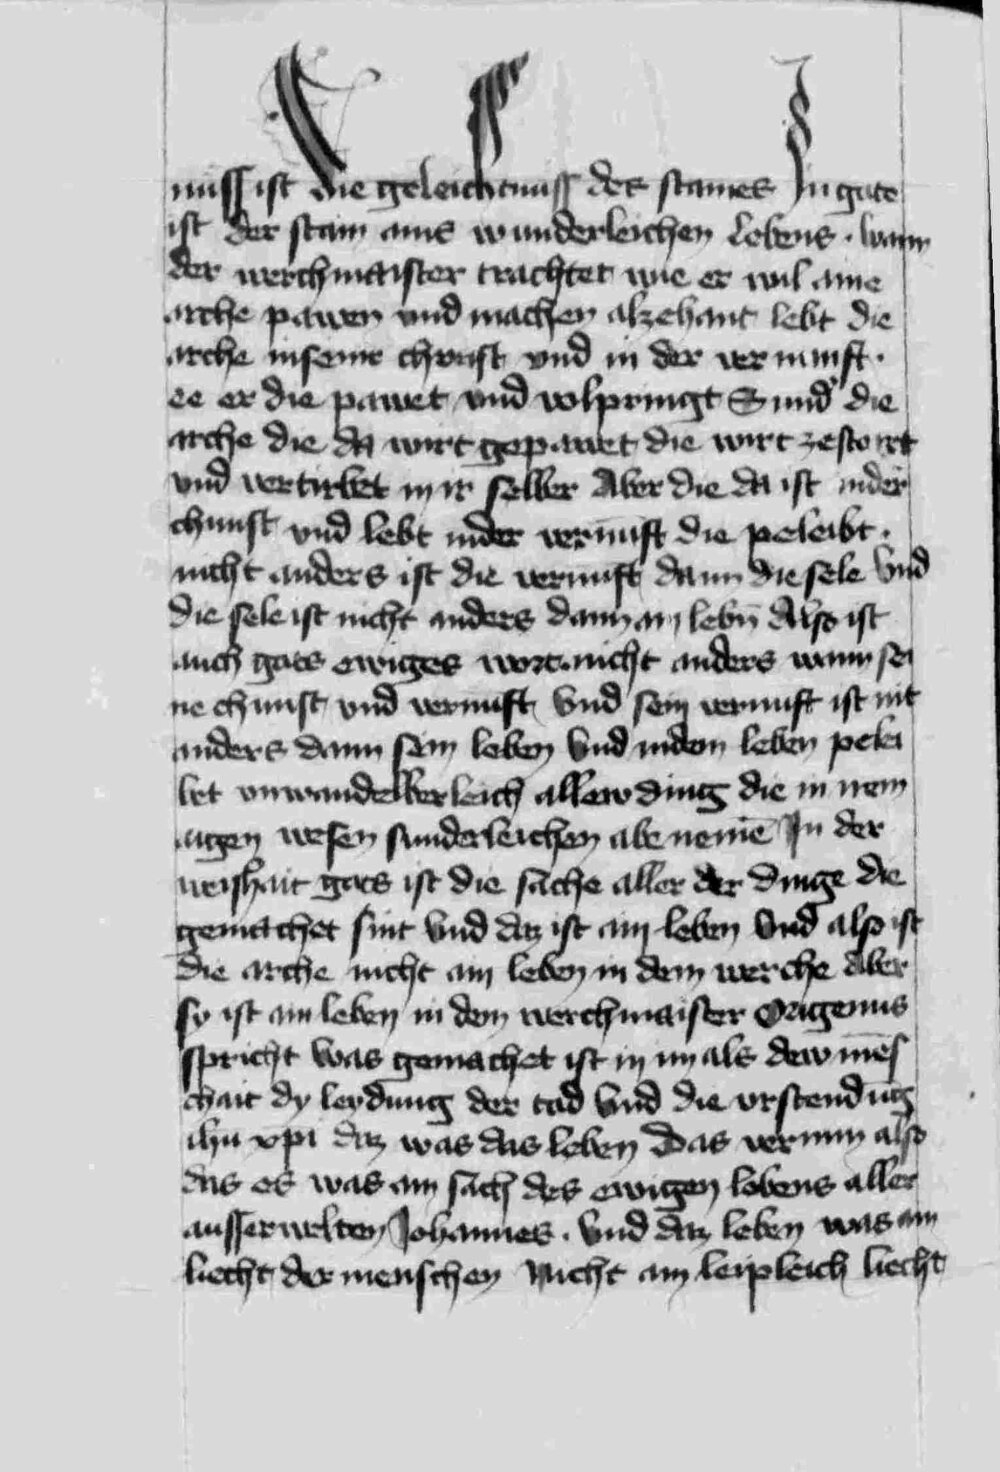 nuss ist die geleichnuss des staines In gote
ist der stain ains wunderleichen lebens . wann
der werchmaister trachtet wie er wil aine
arche pawen vnd machen alzehant lebt die
arche in seiner chunst vnd in der vernunft .
ee er die pawet vnd volpringt Sund' die
arche die da wirt gepawet die wirt zestort
vnd vertirbet in ir selber Aber die da ist inder
chunst vnd lebt inder vernūft die peleibt .
nicht anders ist die vernūft dann die sele Vnd
die sele ist nicht anders dann ain lebn̄ Also ist
auch gots ewiges wort nicht anders wann sei
ne chunst vnd vernūft Vnd sein vernuft ist nit
anders dann sein leben Vnd indem leben pelei
bet vnwandelberleich allew ding die in irem
aigen wesen sunderleichen abe nemē In der
weishait gots ist die sache aller der dinge die
gemachet sint Vnd daz ist ain leben Vnd also ist
die arche nicht ain leben in dem werche Aber
sy ist ain leben in dem werchmaister Origenius
spricht Was gemachet ist in im als dew mēs
chait dy leydung der tod Vnd die vrstendūg
ihu xp̄i daz was das leben Das vernim also
das es was ain sach des ewigen lebens aller
ausserwelten Johannes . Vnd daz leben was ain
liecht der menschen Nicht ain leipleich liecht